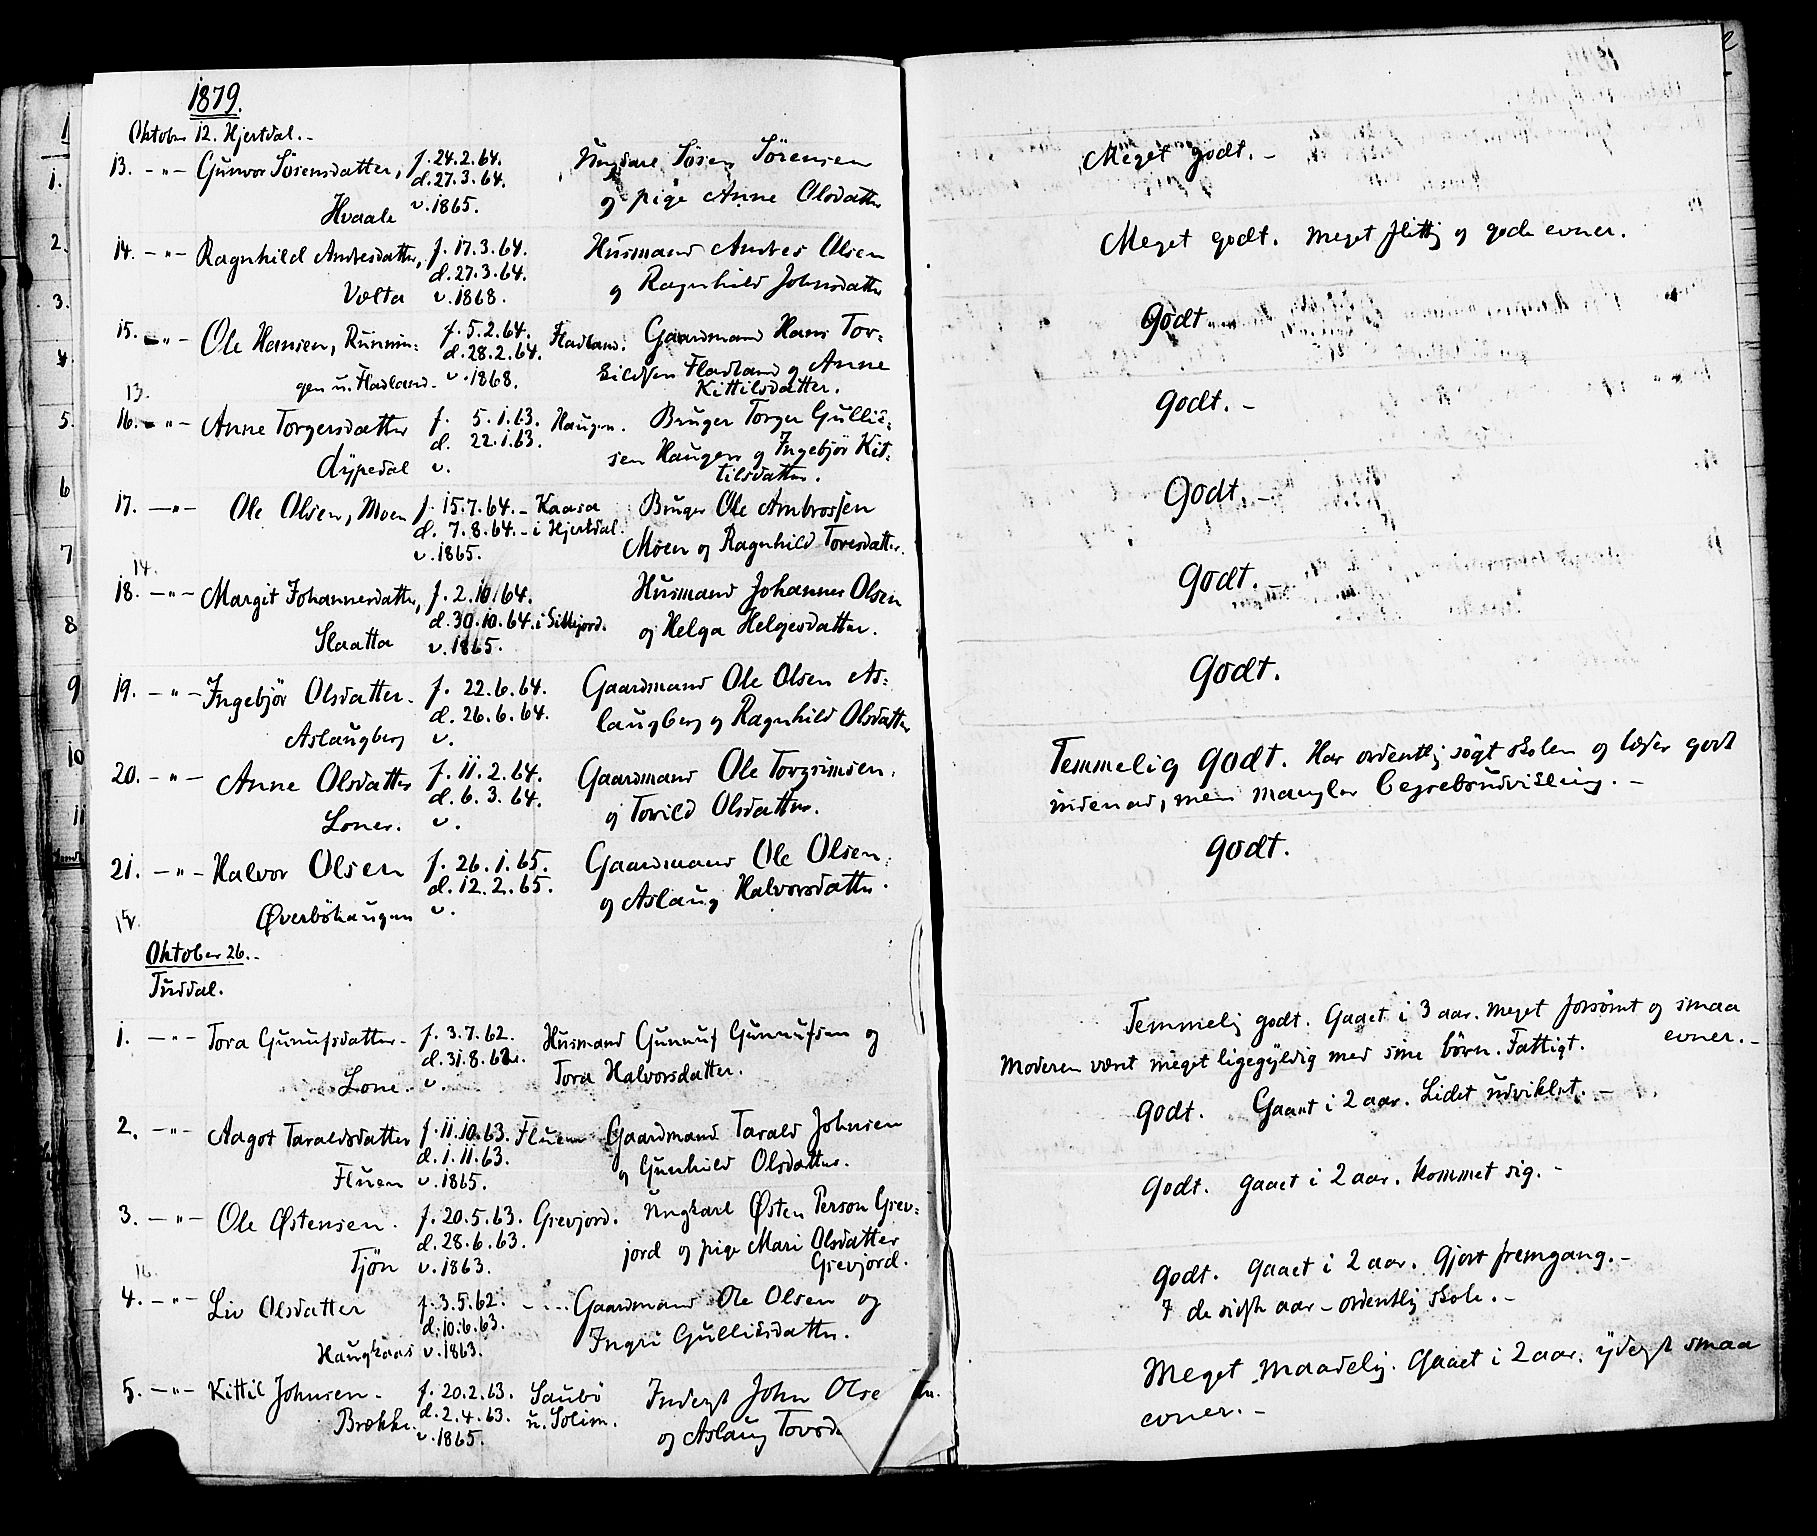 1879.
Oktober 12. Hjertdal. -
13. - " - Gunvor Sörensdatter, f. 24.2.64. Ungkarl Sören Sörensen Meget godt. -
d. 27.3.64.
Hvaale v. 1865. og pige Anne Olsdatter
14. - " - Ragnhild Andresdatter, f. 17.3.64. Husmand Andres Olsen Meget godt. Meget flittig og gode evner.
d. 27.3.64.
Volta v. 1868. og Ragnhild Johnsdatter
15. - " - Ole Hansen, Runnin- f. 5.2.64. Fladland. Gaardmand Hans Tor- Godt.
d. 28.2.64.
gen u. Fladland. v. 1868. Fladland og Anne
Kittilsdatter.
13.
16. - " - Anne Torgersdatter f. 5.1.63. Haugen. Bruger Torger Gullik- Godt. -
d. 22.1.63.
Dypedal v. sen Haugen og Ingebjör Kit-
tilsdatter.
17. - " - Ole Olsen, Moen f. 15.7.64. - Kaasa Bruger Ole Ambrossen Godt. -
d. 7.8.64. - i Hjertdal.
v. 1865. Moen og Ragnhild Toresdatter.
14.
18. - " - Margit Johannesdatter, f. 2.10.64. Husmand Johannes Olsen Godt.
d. 30.10.64. i Sillejord.
Slaatta v. 1865. og Helga Helgesdatter.
19. - " - Ingebjör Olsdatter. f. 22.6.64. Gaardmand Ole Olsen As- Godt.
d. 26.6.64.
Aslaugberg v. laugberg og Ragnhild Olsdatter
20. - " - Anne Olsdatter f. 11.2.64. Gaardmand Ole Torgrimsen Temmelig godt. Har ordentlig sögt skolen og læser godt
d. 6.3.64. indenad, men mangler begrebsudvikling. -
Loner. v. og Torild Olsdatter.
21. - " - Halvor Olsen f. 26.1.65. Gaardmand Ole Olsen Godt.
d. 12.2.65.
Øverböhaugen v. og Aslaug Halvorsdatter.
15.
Oktober 26. -
Tuddal.
1. - " - Tora Gunufsdatter - f. 3.7.62. Husmand Gunnuf Gunnufsen og Temmelig godt. Gaaet i 3 aar. Meget forsömt og smaa
d. 31.8.62. evner. -
Lone. v. Tora Halvorsdatter. Moderen været meget ligegyldig med sine börn. Fattigt.
2. - " - Aagot Taraldsdatter f. 11.10.63. Fluen Gaardmand Tarald Johnsen Godt. Gaaet i 2 aar. Lidet udviklet. -
d. 1.11.63.
Fluen v. 1865. og Gunhild Olsdatter.
3. - " - Ole Østensen. f. 20.5.63. Grevjord. Ungkarl Østen Person Grev- Godt. Gaaet i 2 aar. Kommet sig. -
d. 28.6.63.
Tjön v. 1863. jord og pige Mari Olsdatter
Grevjord.
16.
4. - " - Liv Olsdatter f. 3.5.62. - - - Gaardmand Ole Olsen og Godt. Gaaet i 2 aar. Gjort fremgang. -
d. 10.6.63. I de sidste aar - ordentlig skole. -
Haugkaas v. 1863. Ingri Gulliksdatter.
5. - " - Kittil Johnsen - f. 20.2.63. Saubö Inderst John Olse Meget maadelig. Gaaet i 2 aar. Yderst smaa
d. 2.4.63. u. Solim.
Brække. v. 1865. og Aslaug Torsd evner. -